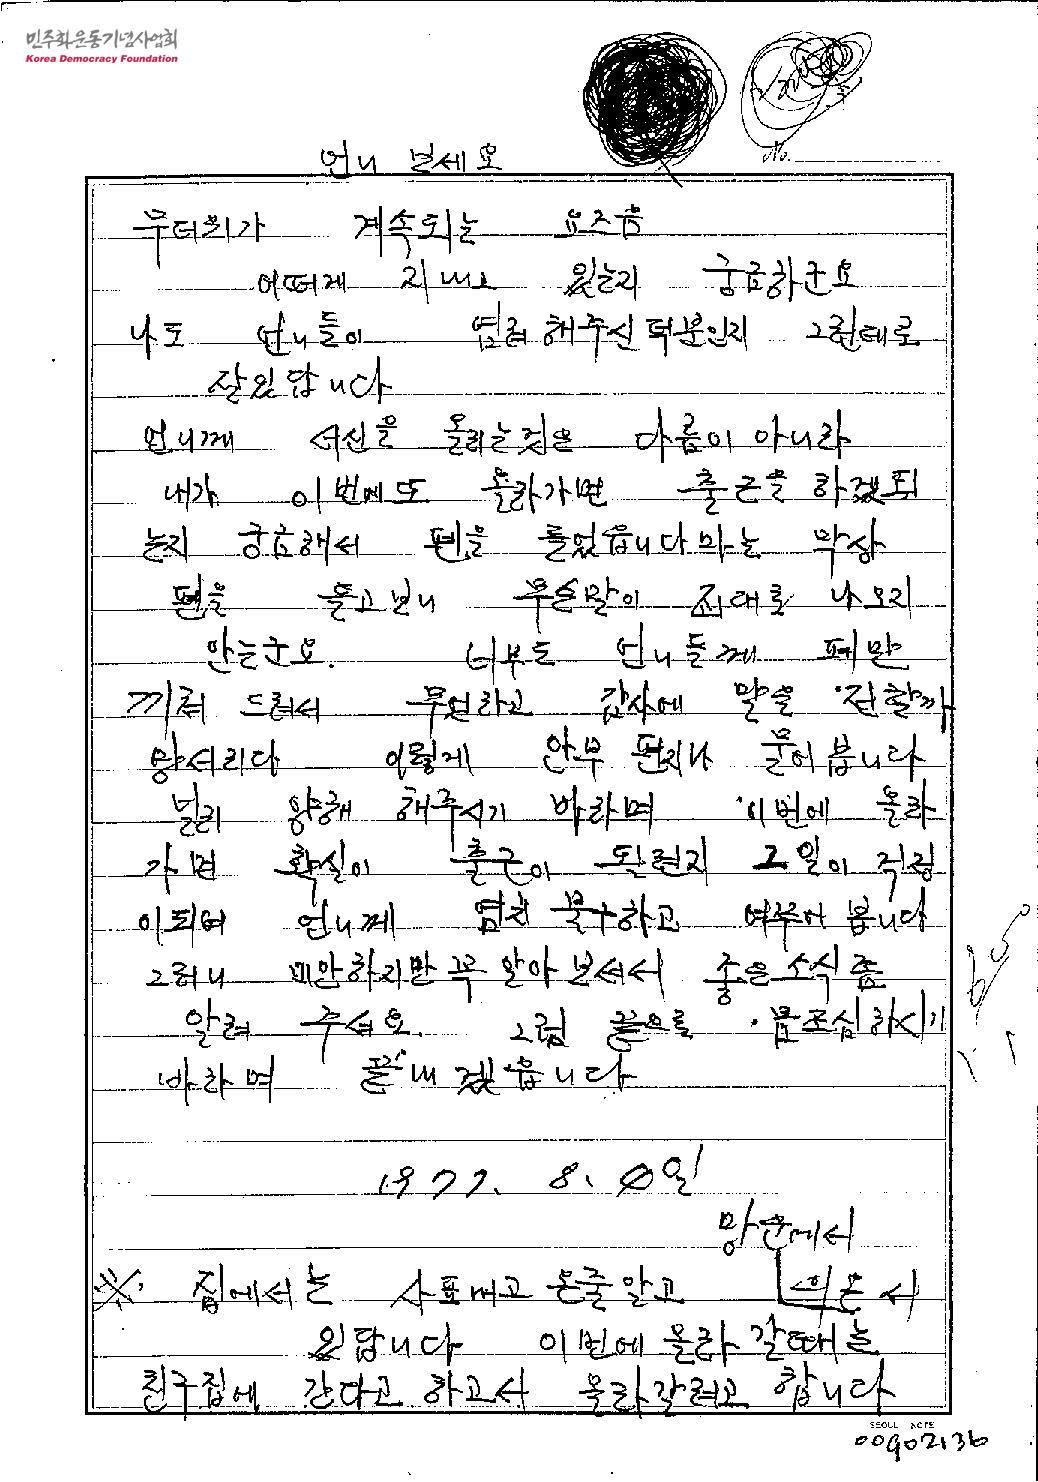 민주화운동기념사업회
Korea Democracy Foundation
No.
언니 보세요
무더위가 계속되는 요즈음
어떠게 지내고 있는지 궁금하군요
나도 언니들이 염려해주신 덕분인지 그런데로
잘있답니다
언니께 서신을 올리는것은 다름이 아니라
내가 이번에또 올라가면 출근을 하겠되
는지 궁금해서 펜을 들었읍니다마는 막상
펜을 들고보니 무슨말이 저대로 나오지
안는군요. 너부도 언니들께 페만
끼려 드려서 무었라고 감사에 말을 전할까
망서리다 이렇게 안부 편지나 물어봅니다
널리 양해 해주시기 바라며 이번에 올라
가면 확실이 출근이 될련지 그일이 걱정
이되여 언니께 염치 불구하고 여쭈어 봅니다
그러니 미안하지만 꼭 알아 보셔서 좋은소식 좀
알려 주세요. 그럼 끝으로 몸조심하시기
바라며 끝내겠읍니다
1977. 8. 일
망운에서
※. 집에서는 사표내고 온줄알고
있답니다 이번에 올라 갈때는
친구집에 간다고 하고서 올라갈려고 합니다
00902136